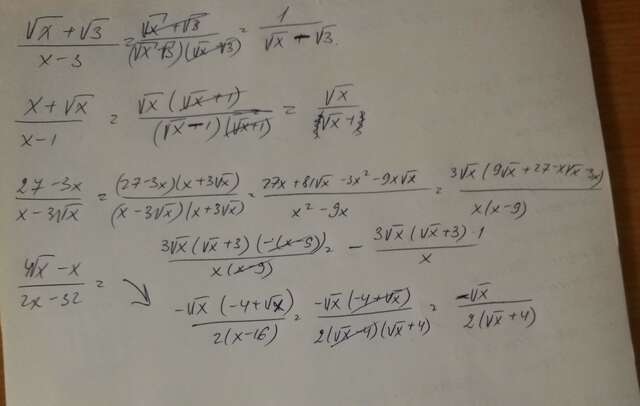 (√x + √3)/(x − 3) = (√x + √3)/((√x + √3)(√x − √3)) = 1/(√x − √3).
(x + √x)/(x − 1) = (√x (√x + 1))/((√x − 1)(√x + 1)) = √x/(√x − 1)
(27 − 3x)/(x − 3√x) = ((27 − 3x)(x + 3√x))/((x − 3√x)(x + 3√x)) = (27x + 81√x − 3x² − 9x√x)/(x² − 9x) = (3√x (9√x + 27 − x√x − 3x))/(x(x − 9))
(3√x (√x + 3)(−(x − 9)))/(x(x − 9)) = − (3√x (√x + 3) · 1)/x
(4√x − x)/(2x − 32) =
(−√x (−4 + √x))/(2(x − 16)) = (−√x (−4 + √x))/(2(√x − 4)(√x + 4)) = −√x/(2(√x + 4))